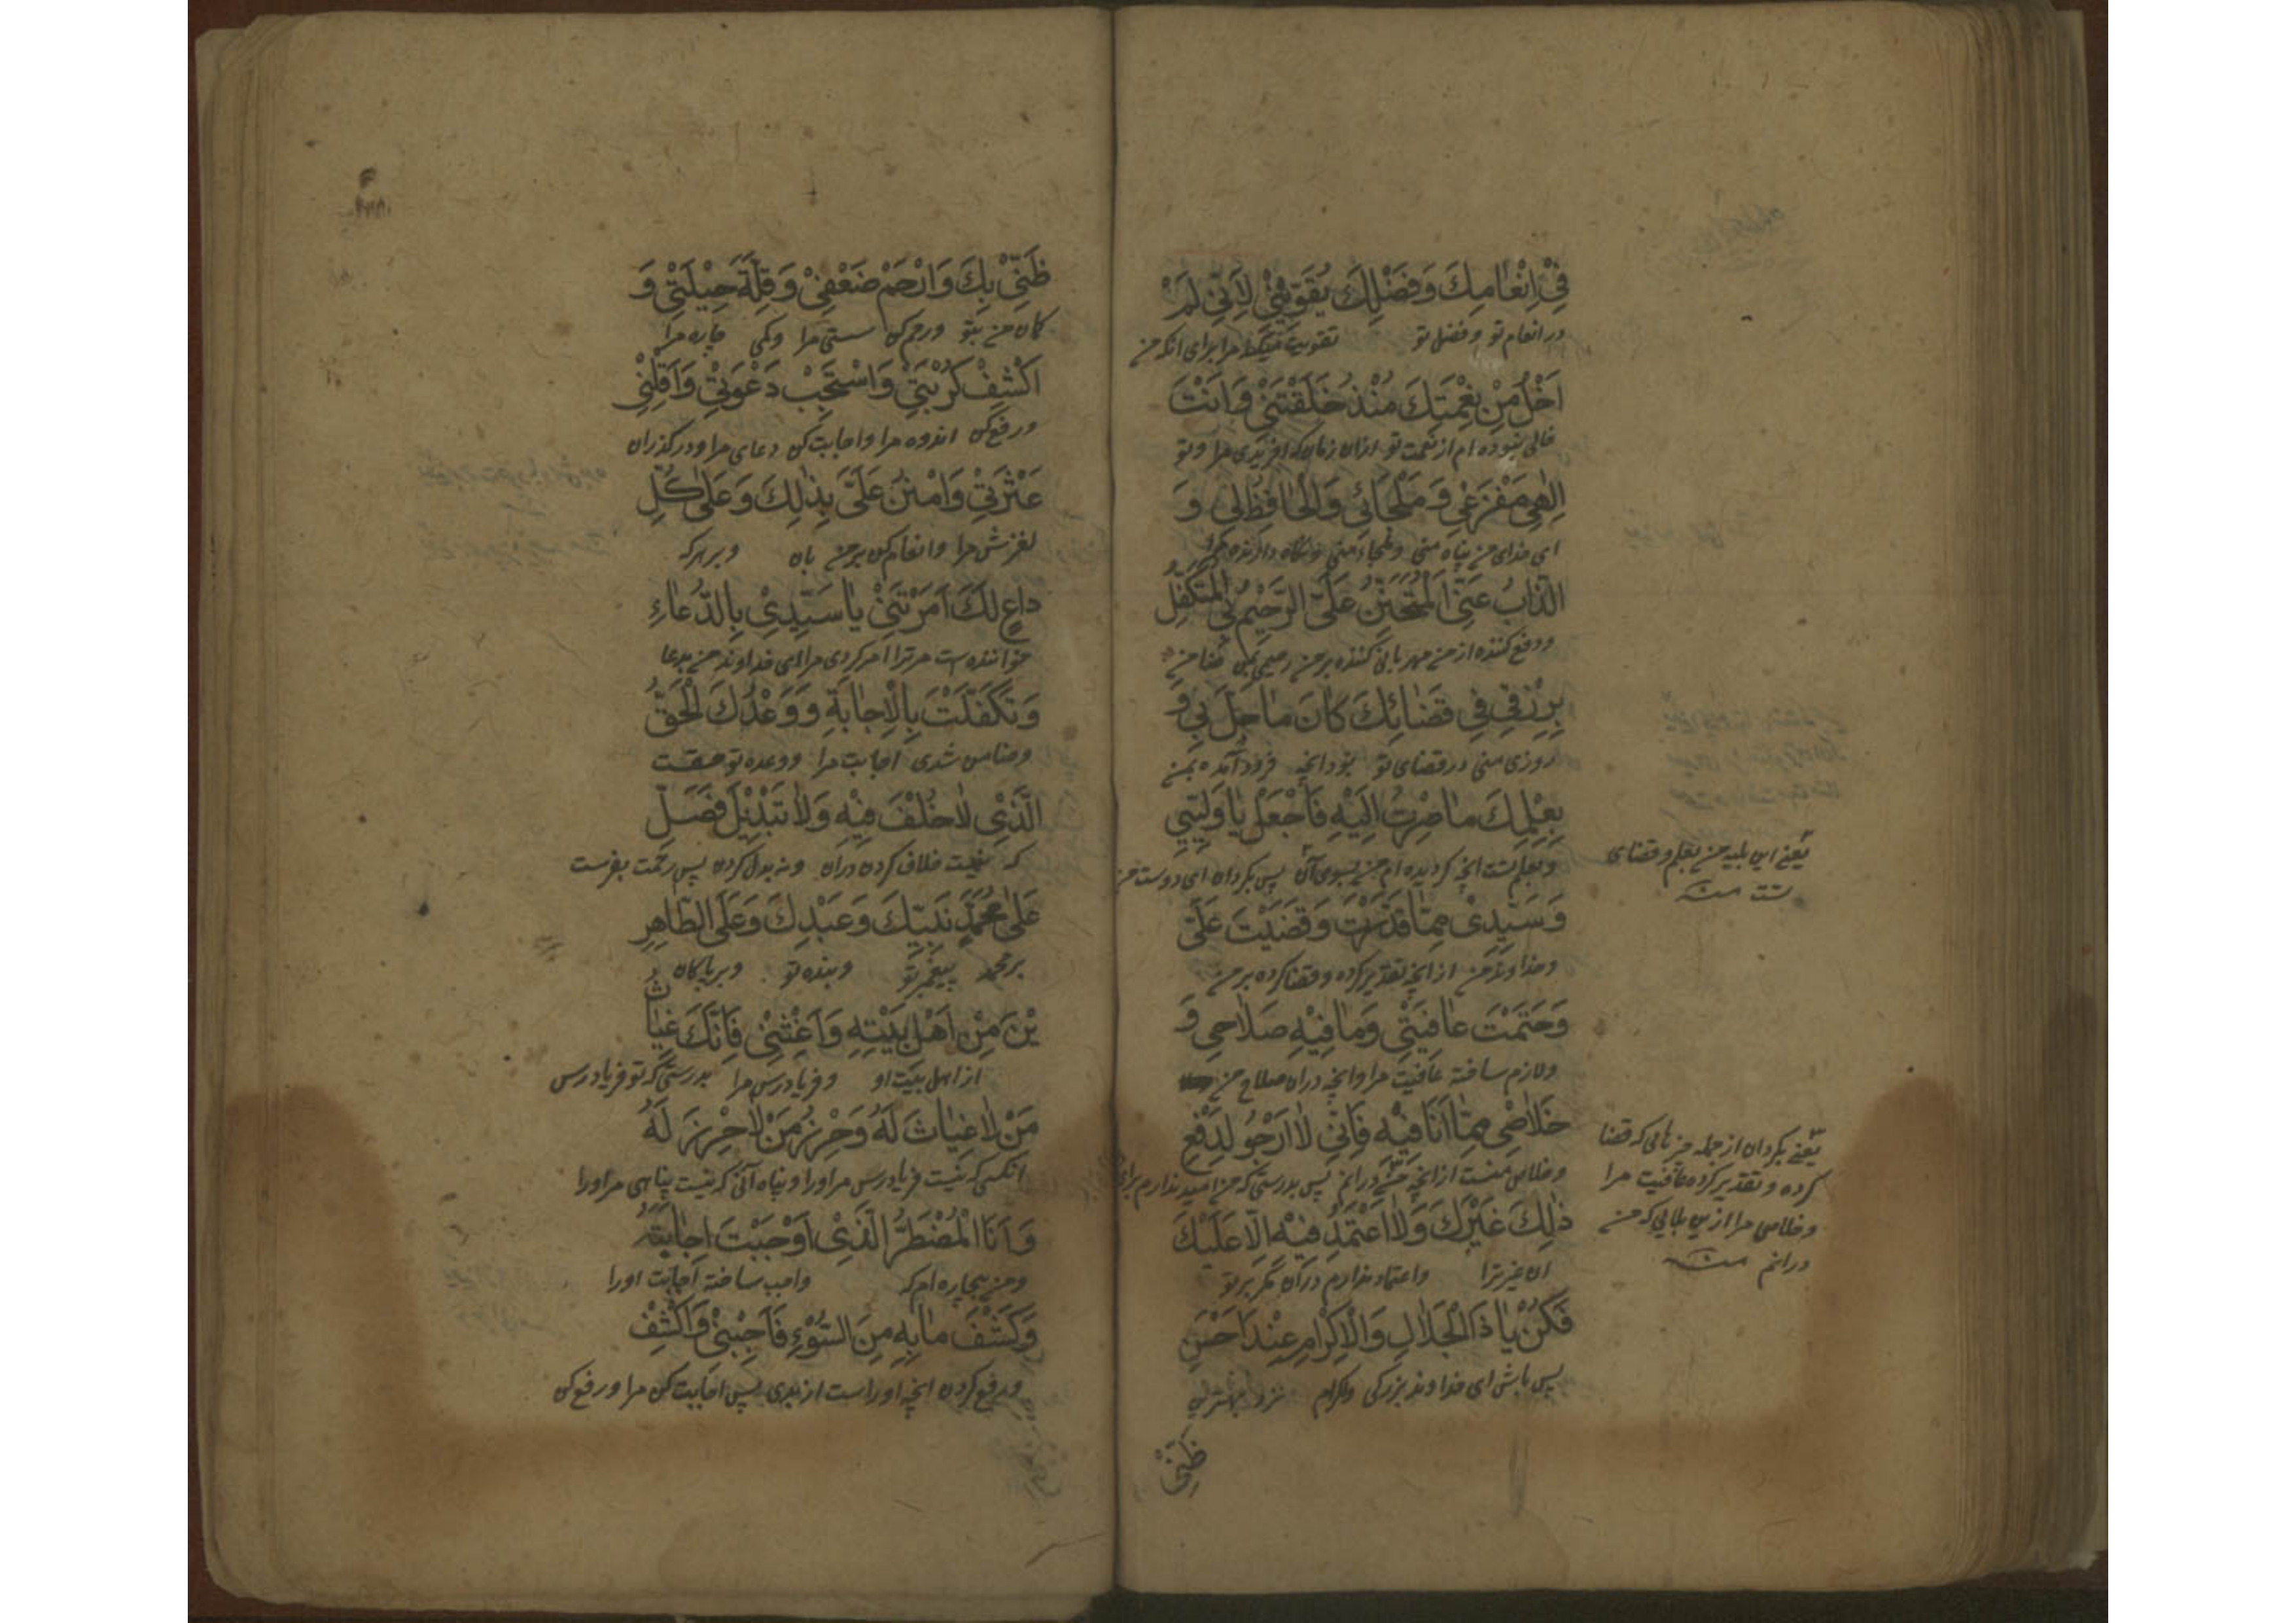 فِيْ اِنْعٰامِكَ وَفَضْلِكَ يُقَوِّيْنِيْ لِاَنِّيْ لَمْ
در انعام تو و فضل تو تقویت میکند مرا برای انکه من
اَخْلُ مِنْ نِعْمَتِكَ مُنْذُ خَلَقْتَنِيْ وَاَنْتَ
خالی نبوده ام از نعمت تو ازان زمان که افریدی مرا و تو
اِلٰهِيْ مَفْزَعِيْ وَ مَلْجَائِيْ وَالْحٰافِظُ لِيْ وَ
ای خدای من پناه منی و ملجاء منی و نگاه دارنده مرا
الذّٰابُّ عَنِّيْ اَلْمُتَحَنِّنُ عَلَيَّ الرَّحِيْمُ بِيْ الْمُتَكَفِّلُ
و دفع کننده از من مهربانی کننده بر من رحیمی بمن ضامن
بِرِزْقِيْ فِيْ قَضٰائِكَ كٰانَ مٰا حَلَّ بِيْ وَ
روزی منی در قضای تو بود انچه فرود آمده بمن
بِعِلْمِكَ مٰا صِرْتُ اِلَيْهِ فَاجْعَلْ يٰا وَلِيِّيْ
و بعلم تست انچه کردیده ام من بسوی آن پس بکردان ای دوست من
یعنی این بلیه من بعلم و قضای
تست منه
وَ سَيِّدِيْ مِمّٰا قَدَّرْتَ وَقَضَيْتَ عَلَيَّ
و خداوند من از انچه تقدیر کرده و قضا کرده بر من
وَحَتَمْتَ عٰافِيَتِيْ وَمٰا فِيْهِ صَلٰاحِيْ وَ
و لازم ساخته عافیت مرا و انچه دران صلاح من
خَلٰاصِيْ مِمّٰا اَنَا فِيْهِ فَاِنِّيْ لٰا اَرْجُوْ لِدَفْعِ
و خلاصی منست از انچه من درانم پس بدرستیکه من امید ندارم برای
یعنی بکردان از جمله چیزهائی که قضا
کرده و تقدیر کرده عافیت مرا
و خلاصی مرا ازین بلائی که من
درانم منه
ذٰلِكَ غَيْرَكَ وَلٰا اَعْتَمِدُ فِيْهِ اِلّٰا عَلَيْكَ
ان غیر ترا و اعتماد ندارم دران مکر بر تو
فَكُنْ يٰا ذَا الْجَلٰالِ وَالْاِكْرٰامِ عِنْدَ اَحْسَنِ
پس باش ای خداوند بزرکی و اکرام نزد بهترین
ظَنِّيْ
ظَنِّيْ بِكَ وَارْحَمْ ضَعْفِيْ وَ قِلَّةَ حِيْلَتِيْ وَ
کمان من بتو و رحم کن سستی مرا و کمی چاره مرا
اكْشِفْ كُرْبَتِيْ وَاسْتَجِبْ دَعْوَتِيْ وَاَقِلْنِيْ
و رفع کن اندوه مرا و اجابت کن دعای مرا و درکذران
عَثْرَتِيْ وَامْنُنْ عَلَيَّ بِذٰلِكَ وَ عَلٰى كُلِّ
لغزش مرا و انعام کن بر من بان و بر هر که
دٰاعٍ لَكَ اَمَرْتَنِيْ يٰا سَيِّدِيْ بِالدُّعٰاءِ
خواننده است مر ترا امر کردی مرا ای خداوند من بدعا
وَ تَكَفَّلْتَ بِالْاِجٰابَةِ وَ وَعْدُكَ الْحَقُّ
و ضامن شدی اجابت مرا و وعده تو حقست
الَّذِيْ لٰا خُلْفَ فِيْهِ وَلٰا تَبْدِيْلَ فَصَلِّ
که نیست خلاف کردن دران و نه بدل کردن پس رحمت بفرست
عَلٰى مُحَمَّدٍ نَبِيِّكَ وَ عَبْدِكَ وَ عَلَى الطّٰاهِرِ
بر محمد پیغمبر تو و بنده تو و بر پاکان
يْنَ مِنْ اَهْلِ بَيْتِهِ وَ اَغِثْنِيْ فَاِنَّكَ غِيٰاثُ
از اهل بیت او و فریادرس مرا بدرستیکه تو فریادرس
مَنْ لٰا غِيٰاثَ لَهُ وَ حِرْزُ مَنْ لٰا حِرْزَ لَهُ
انکسی که نیست فریادرس مر او را و پناه آنی که نیست پناهی مر او را
وَ اَنَا الْمُضْطَرُّ الَّذِيْ اَوْجَبْتَ اِجٰابَتَهُ
و من بیچاره ام که واجب ساخته اجابت او را
وَ كَشْفَ مٰا بِهِ مِنَ السُّوْءِ فَاَجِبْنِيْ وَاكْشِفْ
و رفع کردن انچه او راست از بدی پس اجابت کن مرا و رفع کن